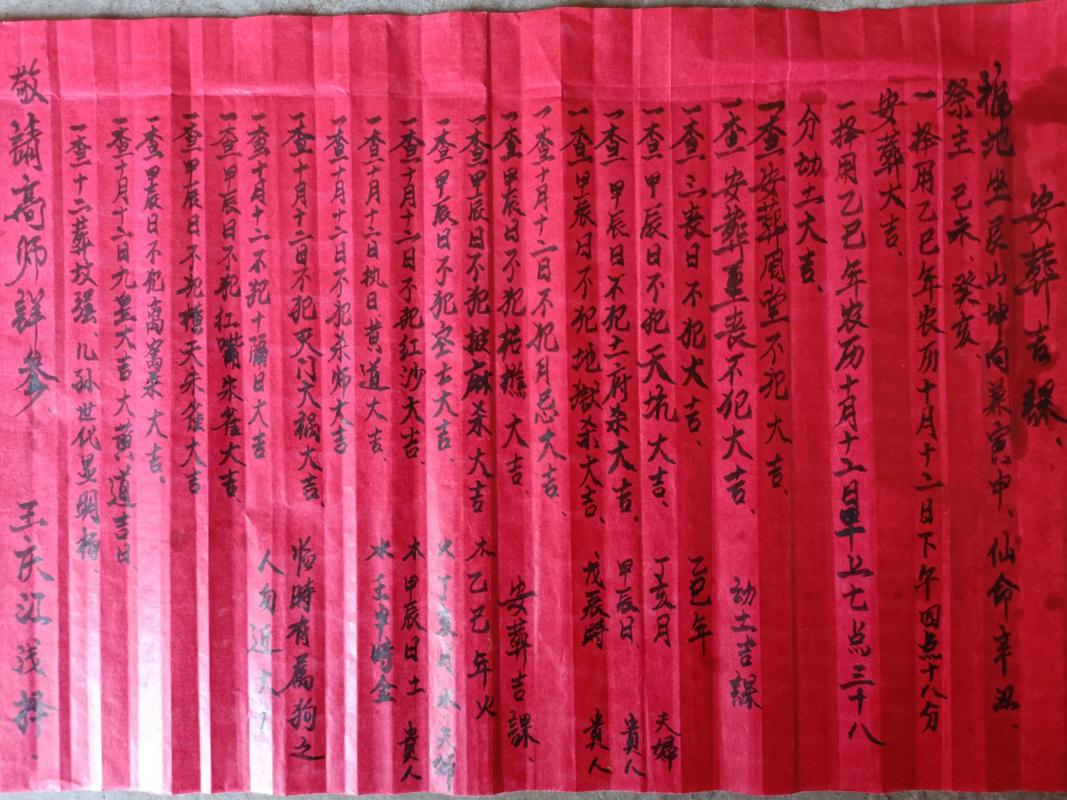 安葬吉課、
福地坐艮山坤向兼寅申、仙命辛丑、
祭主 己未、癸亥、
一择用乙巳年农历十月十二日下午四点十八分
安葬大吉、
一择用乙巳年农历十月十二日早上七点三十八
分动土大吉、
一查安葬眉堂不犯大吉、
一查安葬重丧不犯大吉、
动土吉課
一查三丧日不犯大吉、
乙巳年
一查甲辰日不犯天坑大吉、
丁亥月 夫婦
一查甲辰日不犯土府杀大吉、
甲辰日 貴人
一查甲辰日不犯地獄杀大吉、
戊辰時 貴人
一查十月十二日不犯月忌大吉、
一查甲辰日不犯 大吉、
安葬吉課、
一查甲辰日不犯披麻杀大吉、
木乙巳年火
一查甲辰日不犯空亡大吉、
火丁亥月水 夫婦
一查十月十二日不犯红沙大吉、
木甲辰日土 貴人
一查十月十二日执日黄道大吉、
水壬申時金
一查十月十二日不犯杀师大吉
一查十月十二日不犯灭门大禍大吉、
临時有属狗之
一查十月十二不犯十隔日大吉
人勿近大吉
一查甲辰日不犯红嘴朱雀大吉、
一查甲辰日不犯横天朱雀大吉
一查甲辰日不犯离窠杀大吉、
一查十月十二日九皇大吉大黄道吉日
一查十二葬坟强、儿孙世代显明杨、
敬請高师詳參 王庆江浅择、